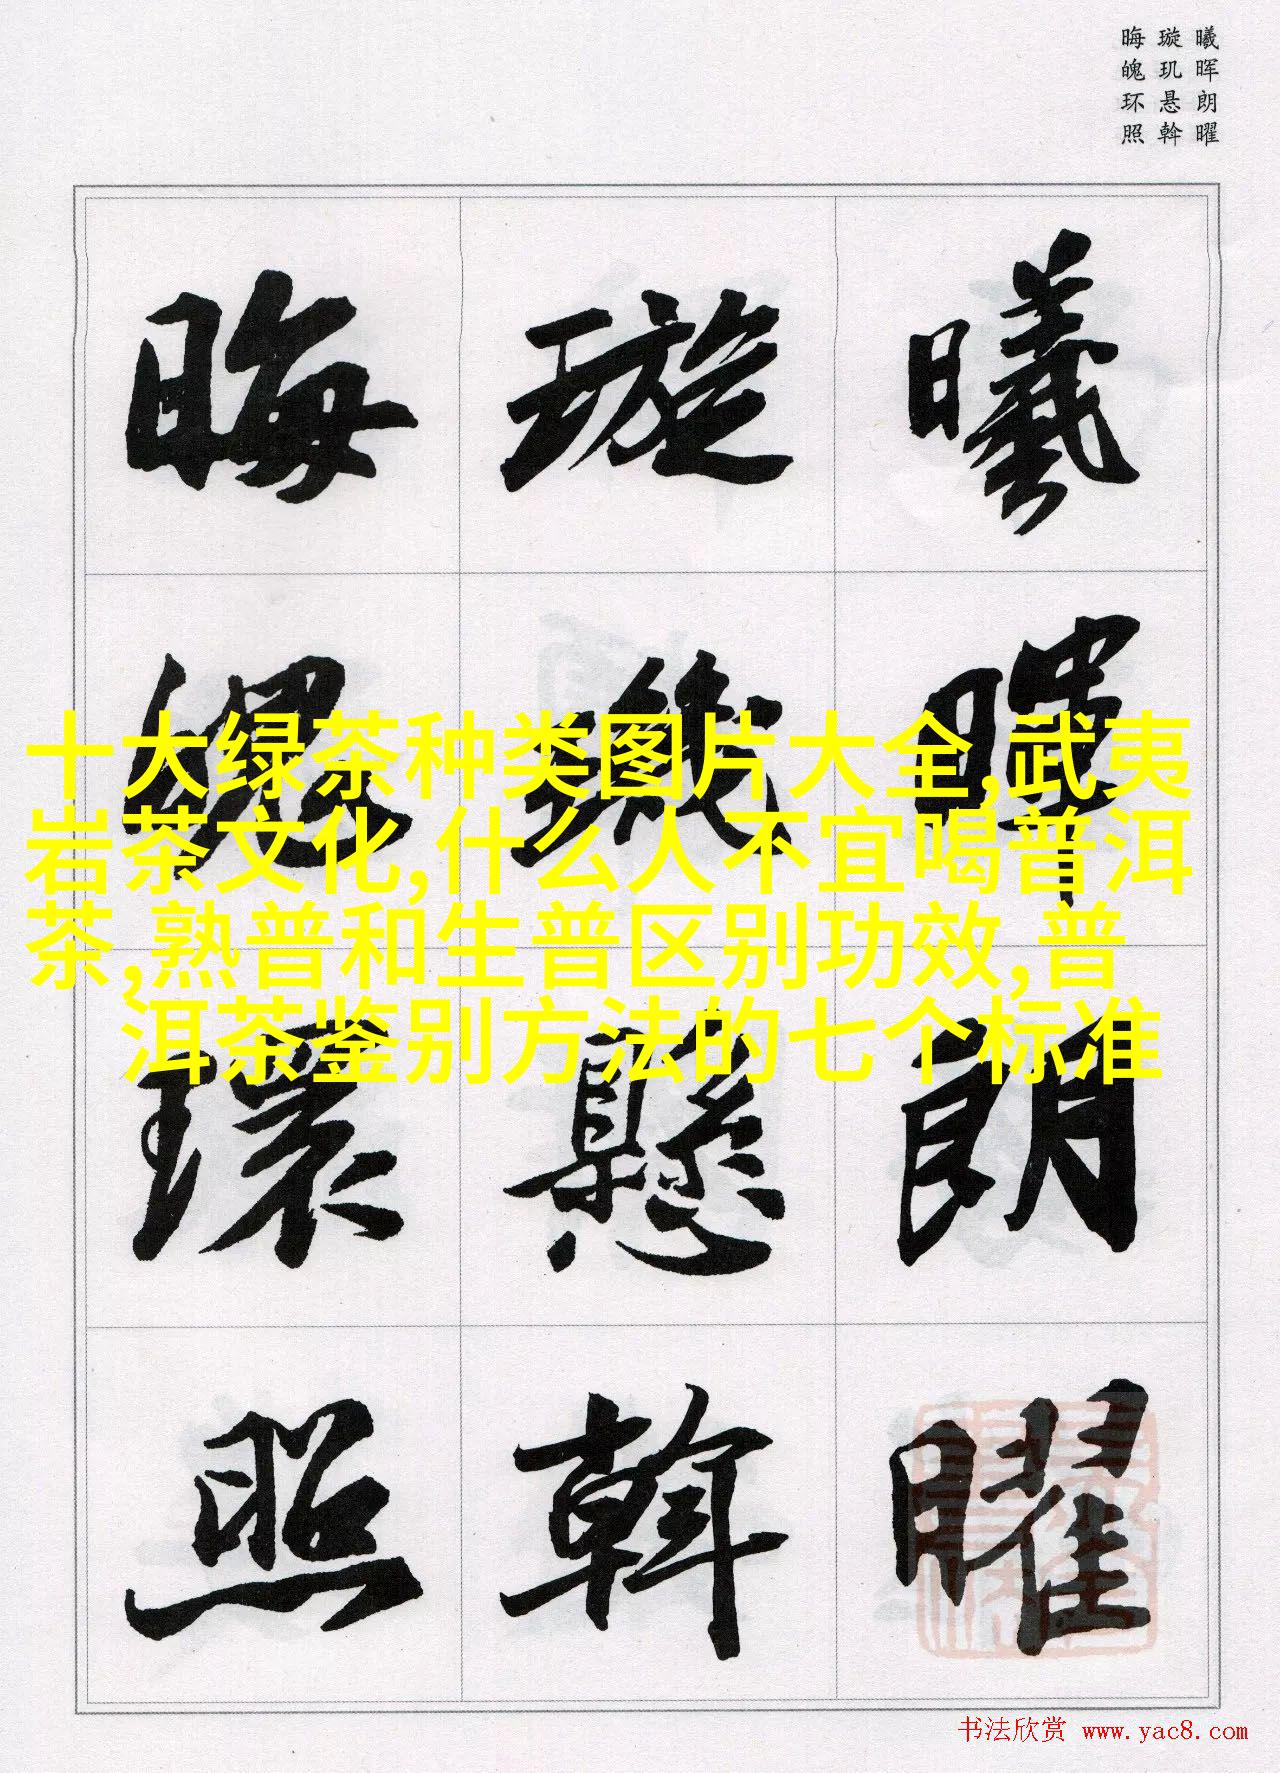 曦晖朗曜
璇玑悬斡
晦魄环照
曦暉朗曜
璇璣懸斡
晦魄環照
十大绿茶种类图片大全,武夷
岩茶文化,什么人不宜喝普洱
茶,熟普和生普区别功效,普
洱茶鉴别方法的七个标准
书法欣赏 www.yac8.com